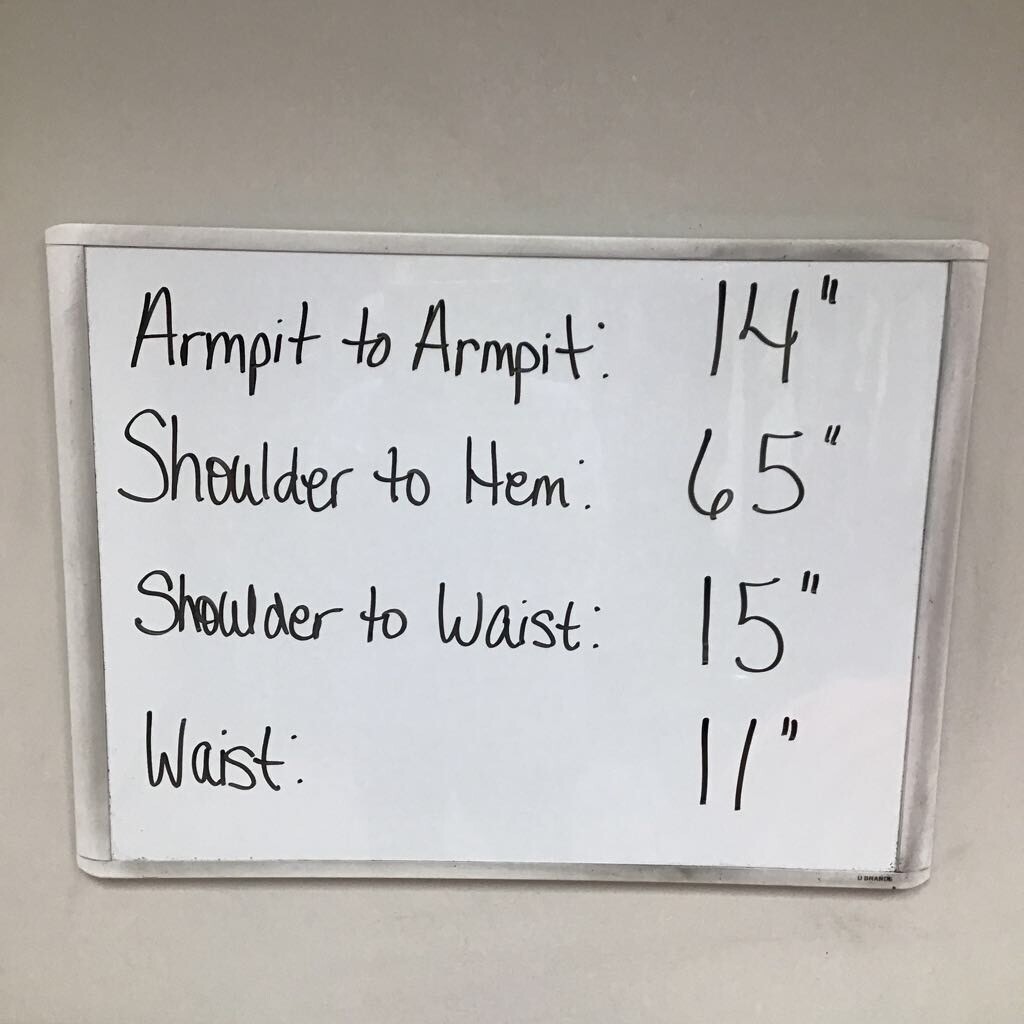 Armpit to Armpit: 14"
Shoulder to Hem: 65"
Shoulder to Waist: 15"
Waist: 11"
U BRANDS